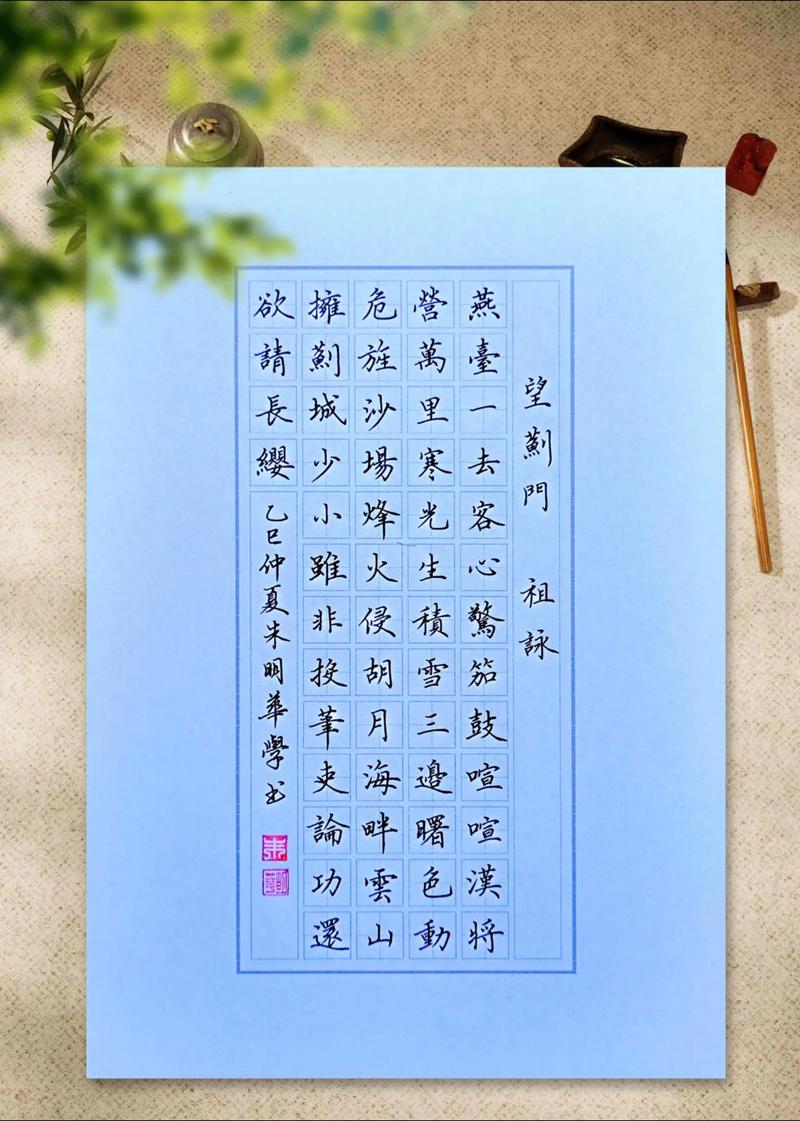 望薊門 祖詠
燕臺一去客心驚笳鼓喧喧漢將
營萬里寒光生積雪三邊曙色動
危旌沙場烽火侵胡月海畔雲山
擁薊城少小雖非投筆吏論功還
欲請長纓 乙巳仲夏朱明華學书
朱
明華